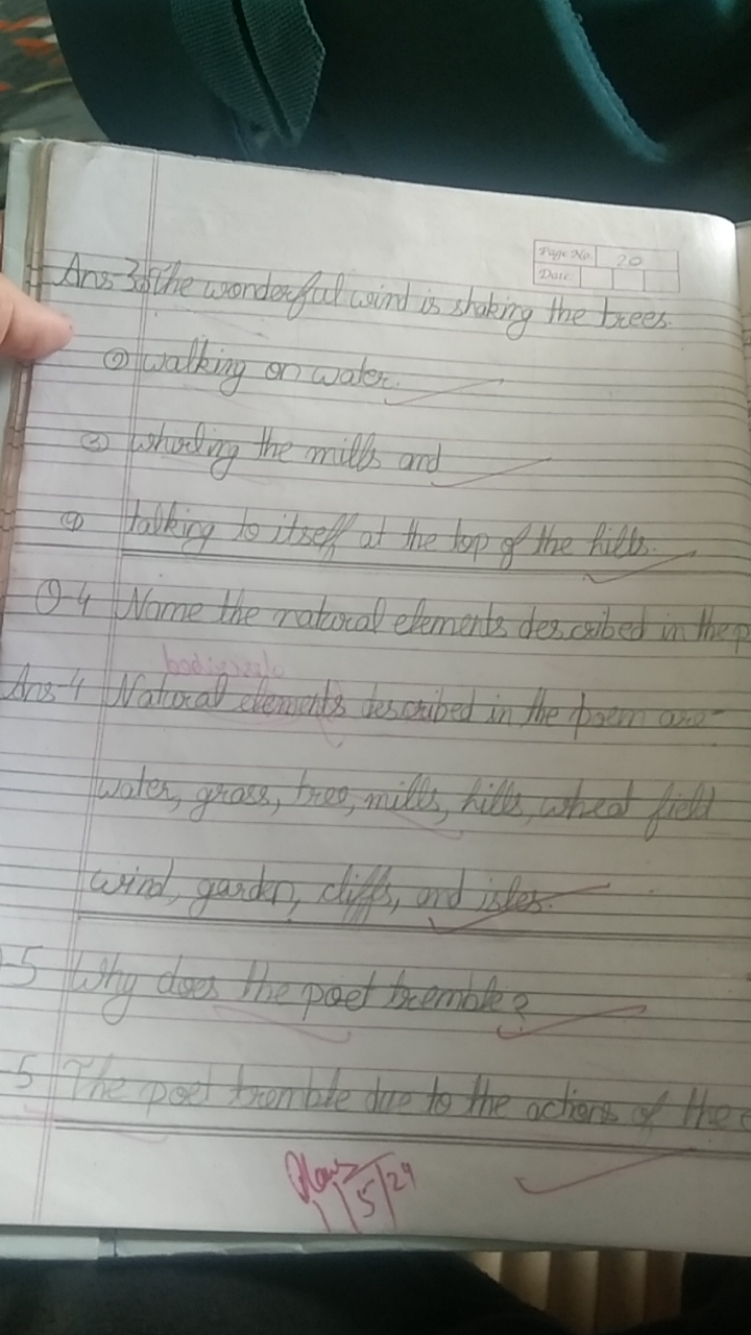 Page No. 20
Date:
Ans-3 ① The wonderful wind is shaking the trees.
② walking on water.
③ whirling the mills and
④ talking to itself at the top of the hills.
Q-4 Name the natural elements described in the p
described
Ans-4 Natural elements described in the poem are-
water, grass, tree, mills, hills, wheat field
wind, garden, cliffs, and isles.
-5 Why does the poet tremble?
-5 The poet tremble due to the actions of the
5/24